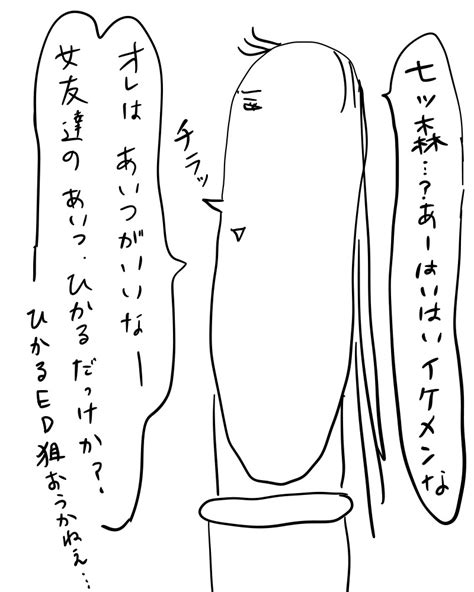 七ツ森…?あーはいはいイケメンな
チラッ
オレは あいつがいいなー
女友達の あいつ.ひかるだっけか?
ひかるED狙おうかねぇ…